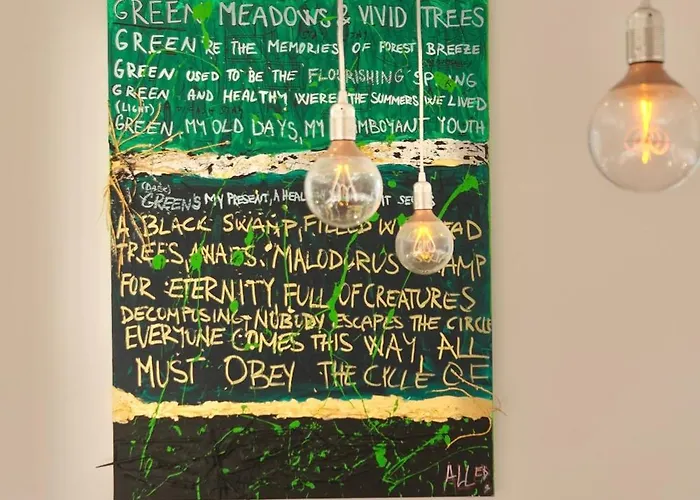 GREEN MEADOWS & VIVID TREES
GREEN'RE THE MEMORIES OF FOREST BREEZE
GREEN USED TO BE THE FLOURISHING SPRING
GREEN AND HEALTHY WERE THE SUMMERS WE LIVED
(LIGHT)
GREEN, MY OLD DAYS, MY YOUTH
(DARK)
GREEN'S MY PRESENT, A IT
A BLACK SWAMP, FILLED
TREES, MALODORUS
FOR ETERNITY FULL OF CREATURES
DECOMPOSING, NOBODY ESCAPES THE CIRCLE
EVERYONE COMES THIS WAY, ALL
MUST OBEY THE CYCLE OF
ALLEB